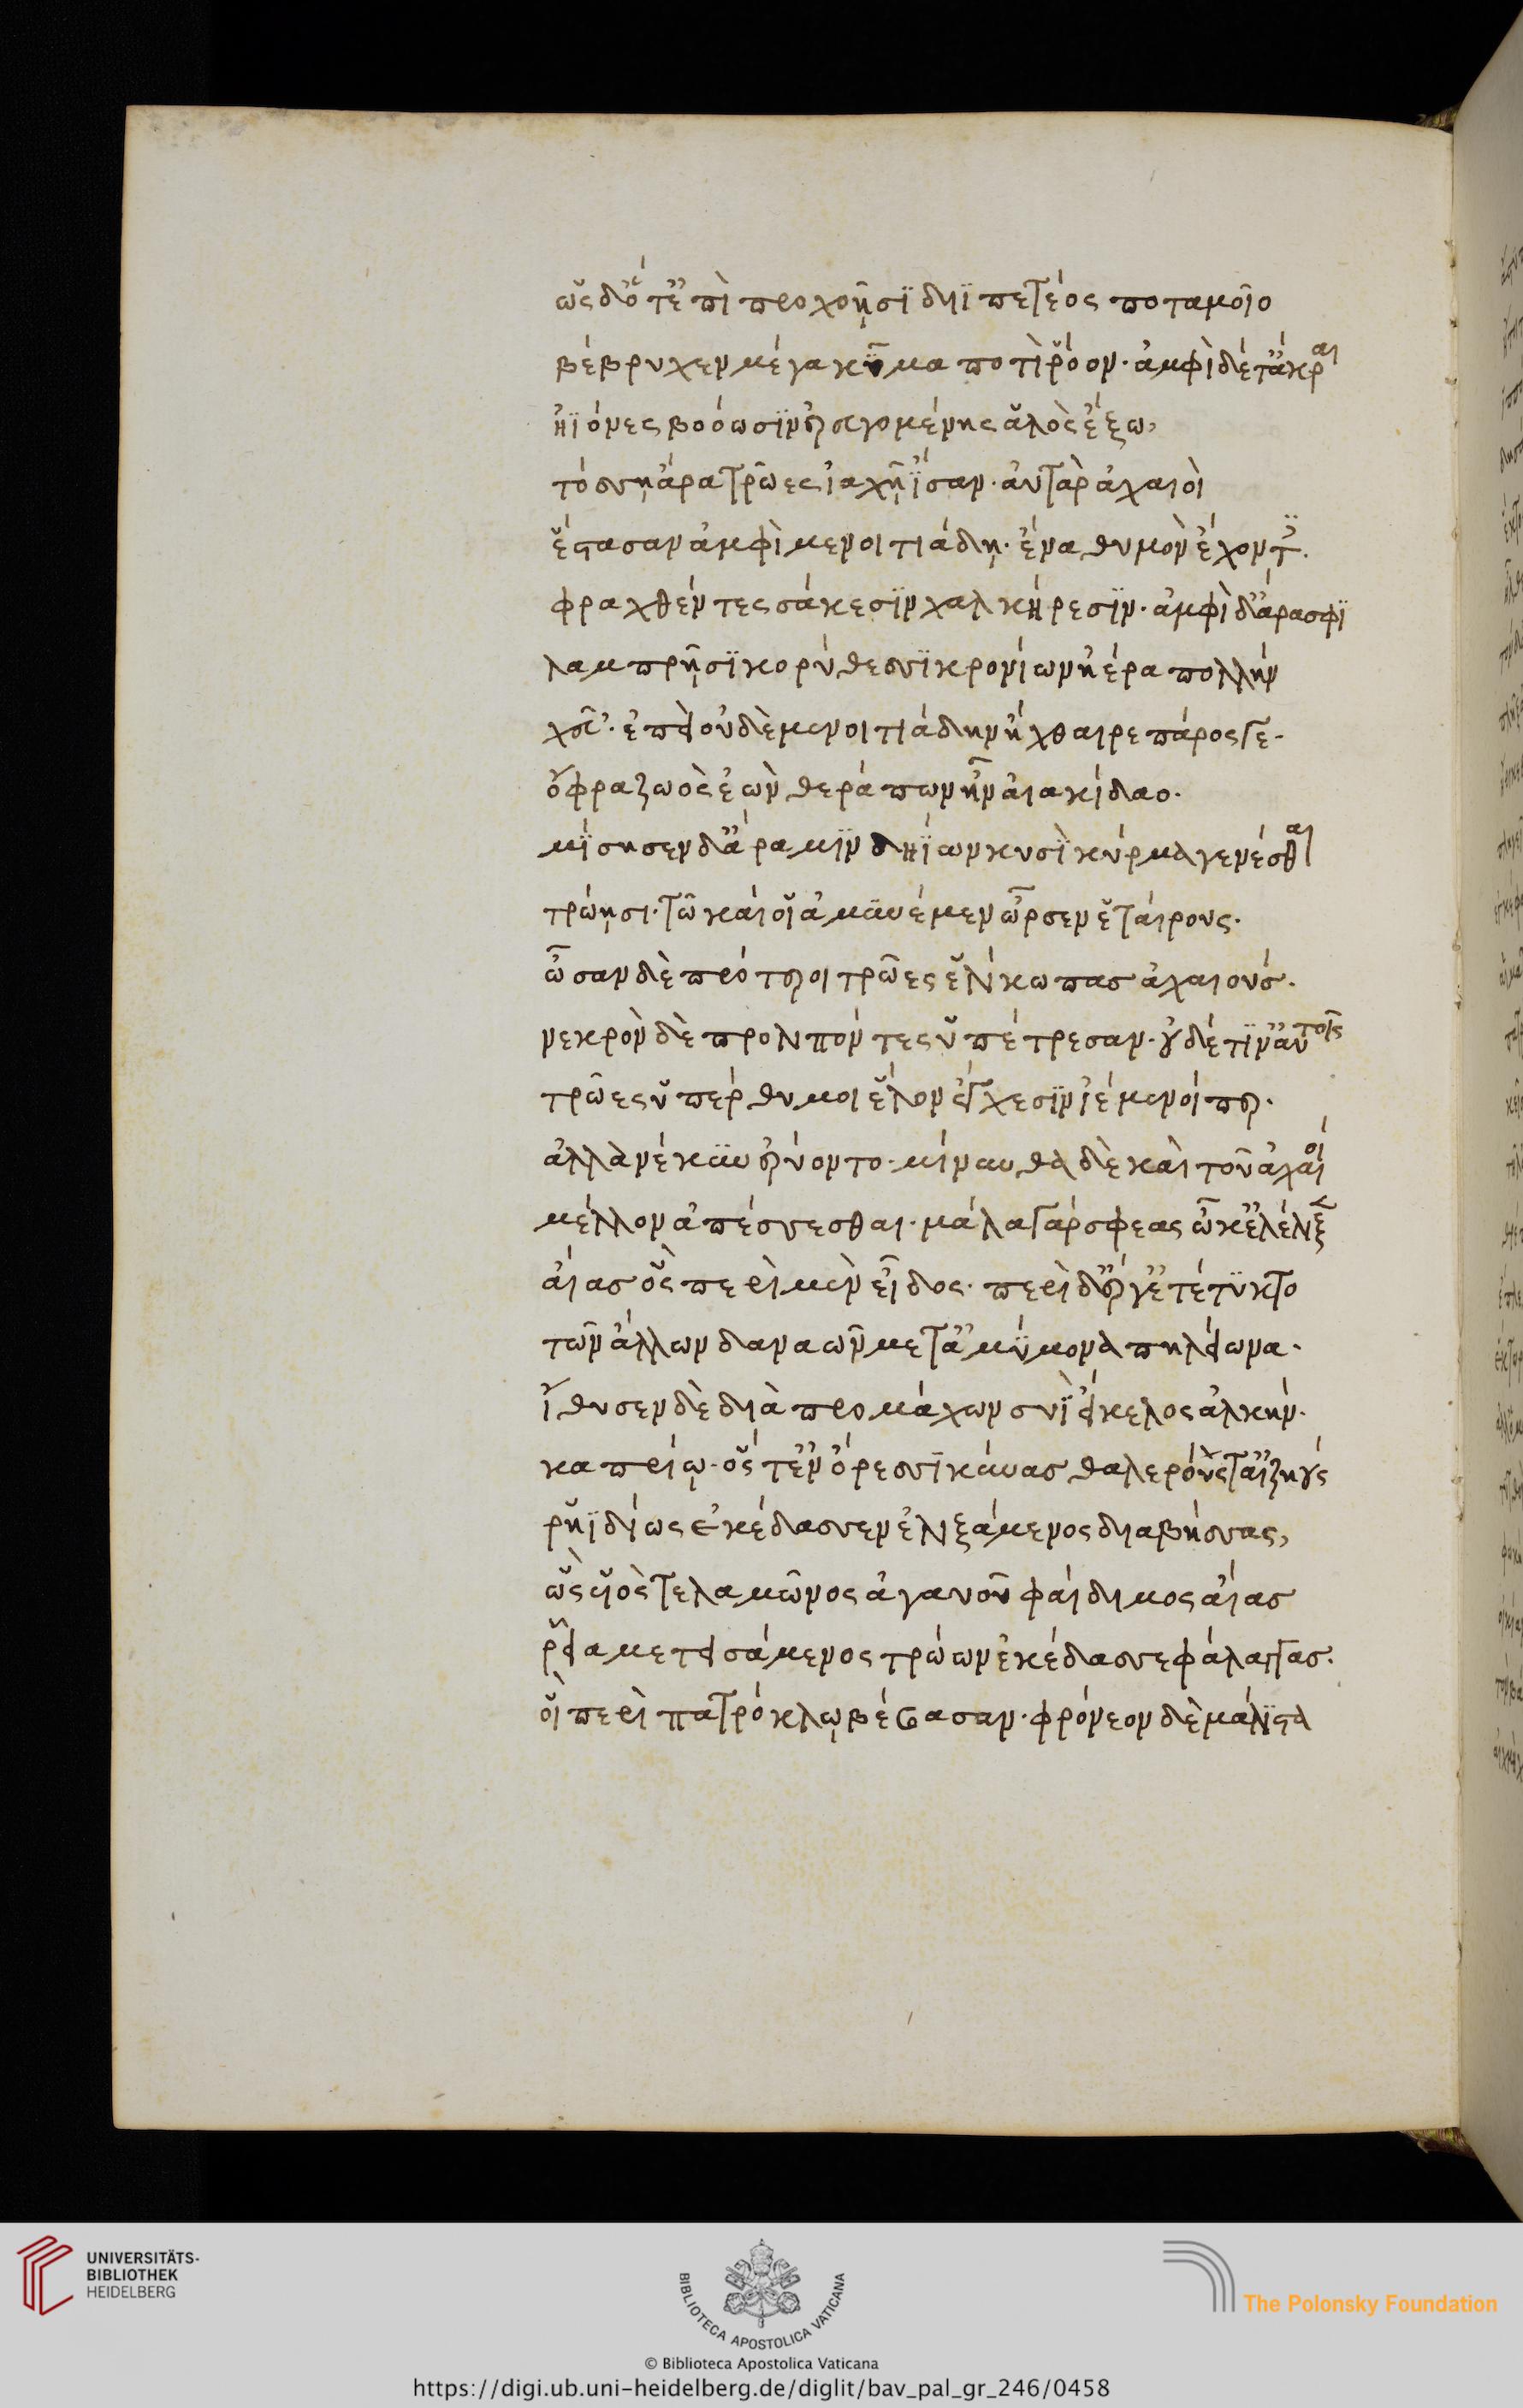 ὡς δ' ὅτ' ἐπὶ προχοῇσι διϊπετέος ποταμοῖο
βέβρυχεν μέγα κῦμα ποτὶ ῥόον· ἀμφὶ δέ τ' ἄκραι
ἠϊόνες βοόωσιν ἐρευγομένης ἁλὸς ἔξω,
τόσσῃ ἄρα τρῶες ἰαχῇ ἴσαν· αὐτὰρ ἀχαιοὶ
ἕστασαν ἀμφὶ μενοιτιάδῃ· ἕνα θυμὸν ἔχοντες.
φραχθέντες σάκεσιν χαλκήρεσιν· ἀμφὶ δ' ἄρα σφι
λαμπρῇσι κορύθεσσι κρονίων ἠέρα πολλὴν
χεῦ'· ἐπεὶ οὐδὲ μενοιτιάδην ἤχθαιρε πάρος γε·
ὄφρα ζωὸς ἐὼν θεράπων ἦν αἰακίδαο.
μίσησεν δ' ἄρα μιν δηΐων κυσὶ κύρμα γενέσθαι
τρώῃσι· τῶ καί οἱ ἀμυνέμεν ὦρσεν ἑταίρους.
ὦσαν δὲ πρότεροι τρῶες ἑλίκωπας ἀχαιούς.
νεκρὸν δὲ προλιπόντες ὑπέτρεσαν· οὐδέ τιν' αὐτοῖς
τρῶες ὑπέρθυμοι ἕλον ἔγχεσιν ἱέμενοί περ.
ἀλλὰ νέκυν ἐρύοντο· μίνυνθα δὲ καὶ τοῦ ἀχαιοί
μέλλον ἀπέσσεσθαι· μάλα γάρ σφεας ὦκ' ἐλέλιξεν
αἴας ὃς περὶ μὲν εἶδος· περὶ δ' ἔργ' ἐτέτυκτο
τῶν ἄλλων δαναῶν μετ' ἀμύμονα πηλείωνα.
ἴθυσεν δὲ διὰ προμάχων συῒ εἴκελος ἀλκὴν·
καπρίῳ· ὅς τ' ἐν ὄρεσσι κύνας θαλερούς τ' αἰζηούς
ῥηϊδίως ἐκέδασσεν ἐλιξάμενος διὰ βήσσας,
ὣς υἱὸς τελαμῶνος ἀγαυοῦ φαίδιμος αἴας
ῥεῖα μετεισάμενος τρώων ἐκέδασσε φάλαγγας.
οἳ περὶ πατρόκλῳ βέβασαν· φρόνεον δὲ μάλιστα
UNIVERSITÄTS-
BIBLIOTHEK
HEIDELBERG
BIBLIOTECA APOSTOLICA VATICANA
The Polonsky Foundation
© Biblioteca Apostolica Vaticana
https://digi.ub.uni-heidelberg.de/diglit/bav_pal_gr_246/0458